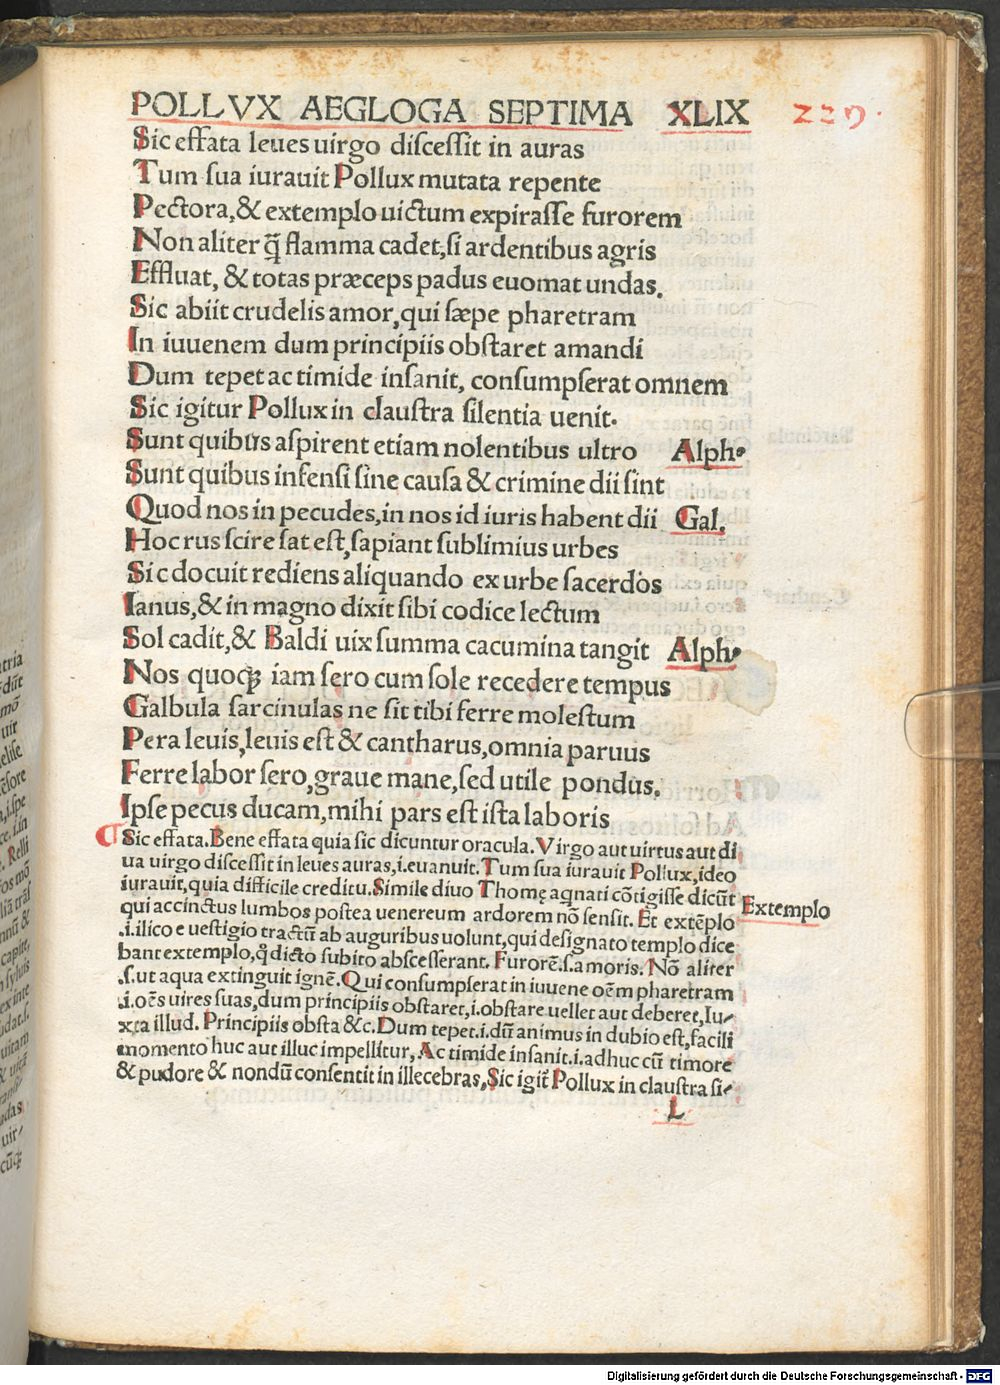 POLLVX AEGLOGA SEPTIMA XLIX 229.
Sic effata leues uirgo discessit in auras
Tum sua iurauit Pollux mutata repente
Pectora, & extemplo uictum expirasse furorem
Non aliter q̃ flamma cadet, si ardentibus agris
Effluat, & totas præceps padus euomat undas.
Sic abiit crudelis amor, qui sæpe pharetram
In iuuenem dum principiis obstaret amandi
Dum tepet ac timide insanit, consumpserat omnem
Sic igitur Pollux in claustra silentia uenit.
Sunt quibus aspirent etiam nolentibus ultro Alph.
Sunt quibus infensi sine causa & crimine dii sint
Quod nos in pecudes, in nos id iuris habent dii Gal.
Hoc rus scire sat est, sapiant sublimius urbes
Sic docuit rediens aliquando ex urbe sacerdos
Ianus, & in magno dixit sibi codice lectum
Sol cadit, & Baldi uix summa cacumina tangit Alph.
Nos quoqꝫ iam sero cum sole recedere tempus
Galbula sarcinulas ne sit tibi ferre molestum
Pera leuis, leuis est & cantharus, omnia paruus
Ferre labor sero, graue mane, sed utile pondus.
Ipse pecus ducam, mihi pars est ista laboris
¶ Sic effata. Bene effata quia sic dicuntur oracula. Virgo aut uirtus aut di
ua uirgo discessit in leues auras, i. euanuit. Tum sua iurauit Pollux, ideo
iurauit, quia difficile creditu. Simile diuo Thomę aqnati cõtigisse dicũt
qui accinctus lumbos postea uenereum ardorem nõ sensit. Et extẽplo Extemplo
.i. ilico e uestigio tractũ ab auguribus uolunt, qui designato templo dice
bant extemplo, q̊ dicto subito abscesserant. Furorẽ. s. amoris. Nõ aliter
.s. ut aqua extinguit ignẽ. Qui consumpserat in iuuene oẽm pharetram
.i. oẽs uires suas, dum principiis obstaret, i. obstare uellet aut deberet, Iu-
xta illud. Principiis obsta &c. Dum tepet. i. dũ animus in dubio est, facili
momento huc aut illuc impellitur, Ac timide insanit. i. adhuc cũ timore
& pudore & nondũ consentit in illecebras, Sic igit̃ Pollux in claustra si-
L
Digitalisierung gefördert durch die Deutsche Forschungsgemeinschaft - DFG